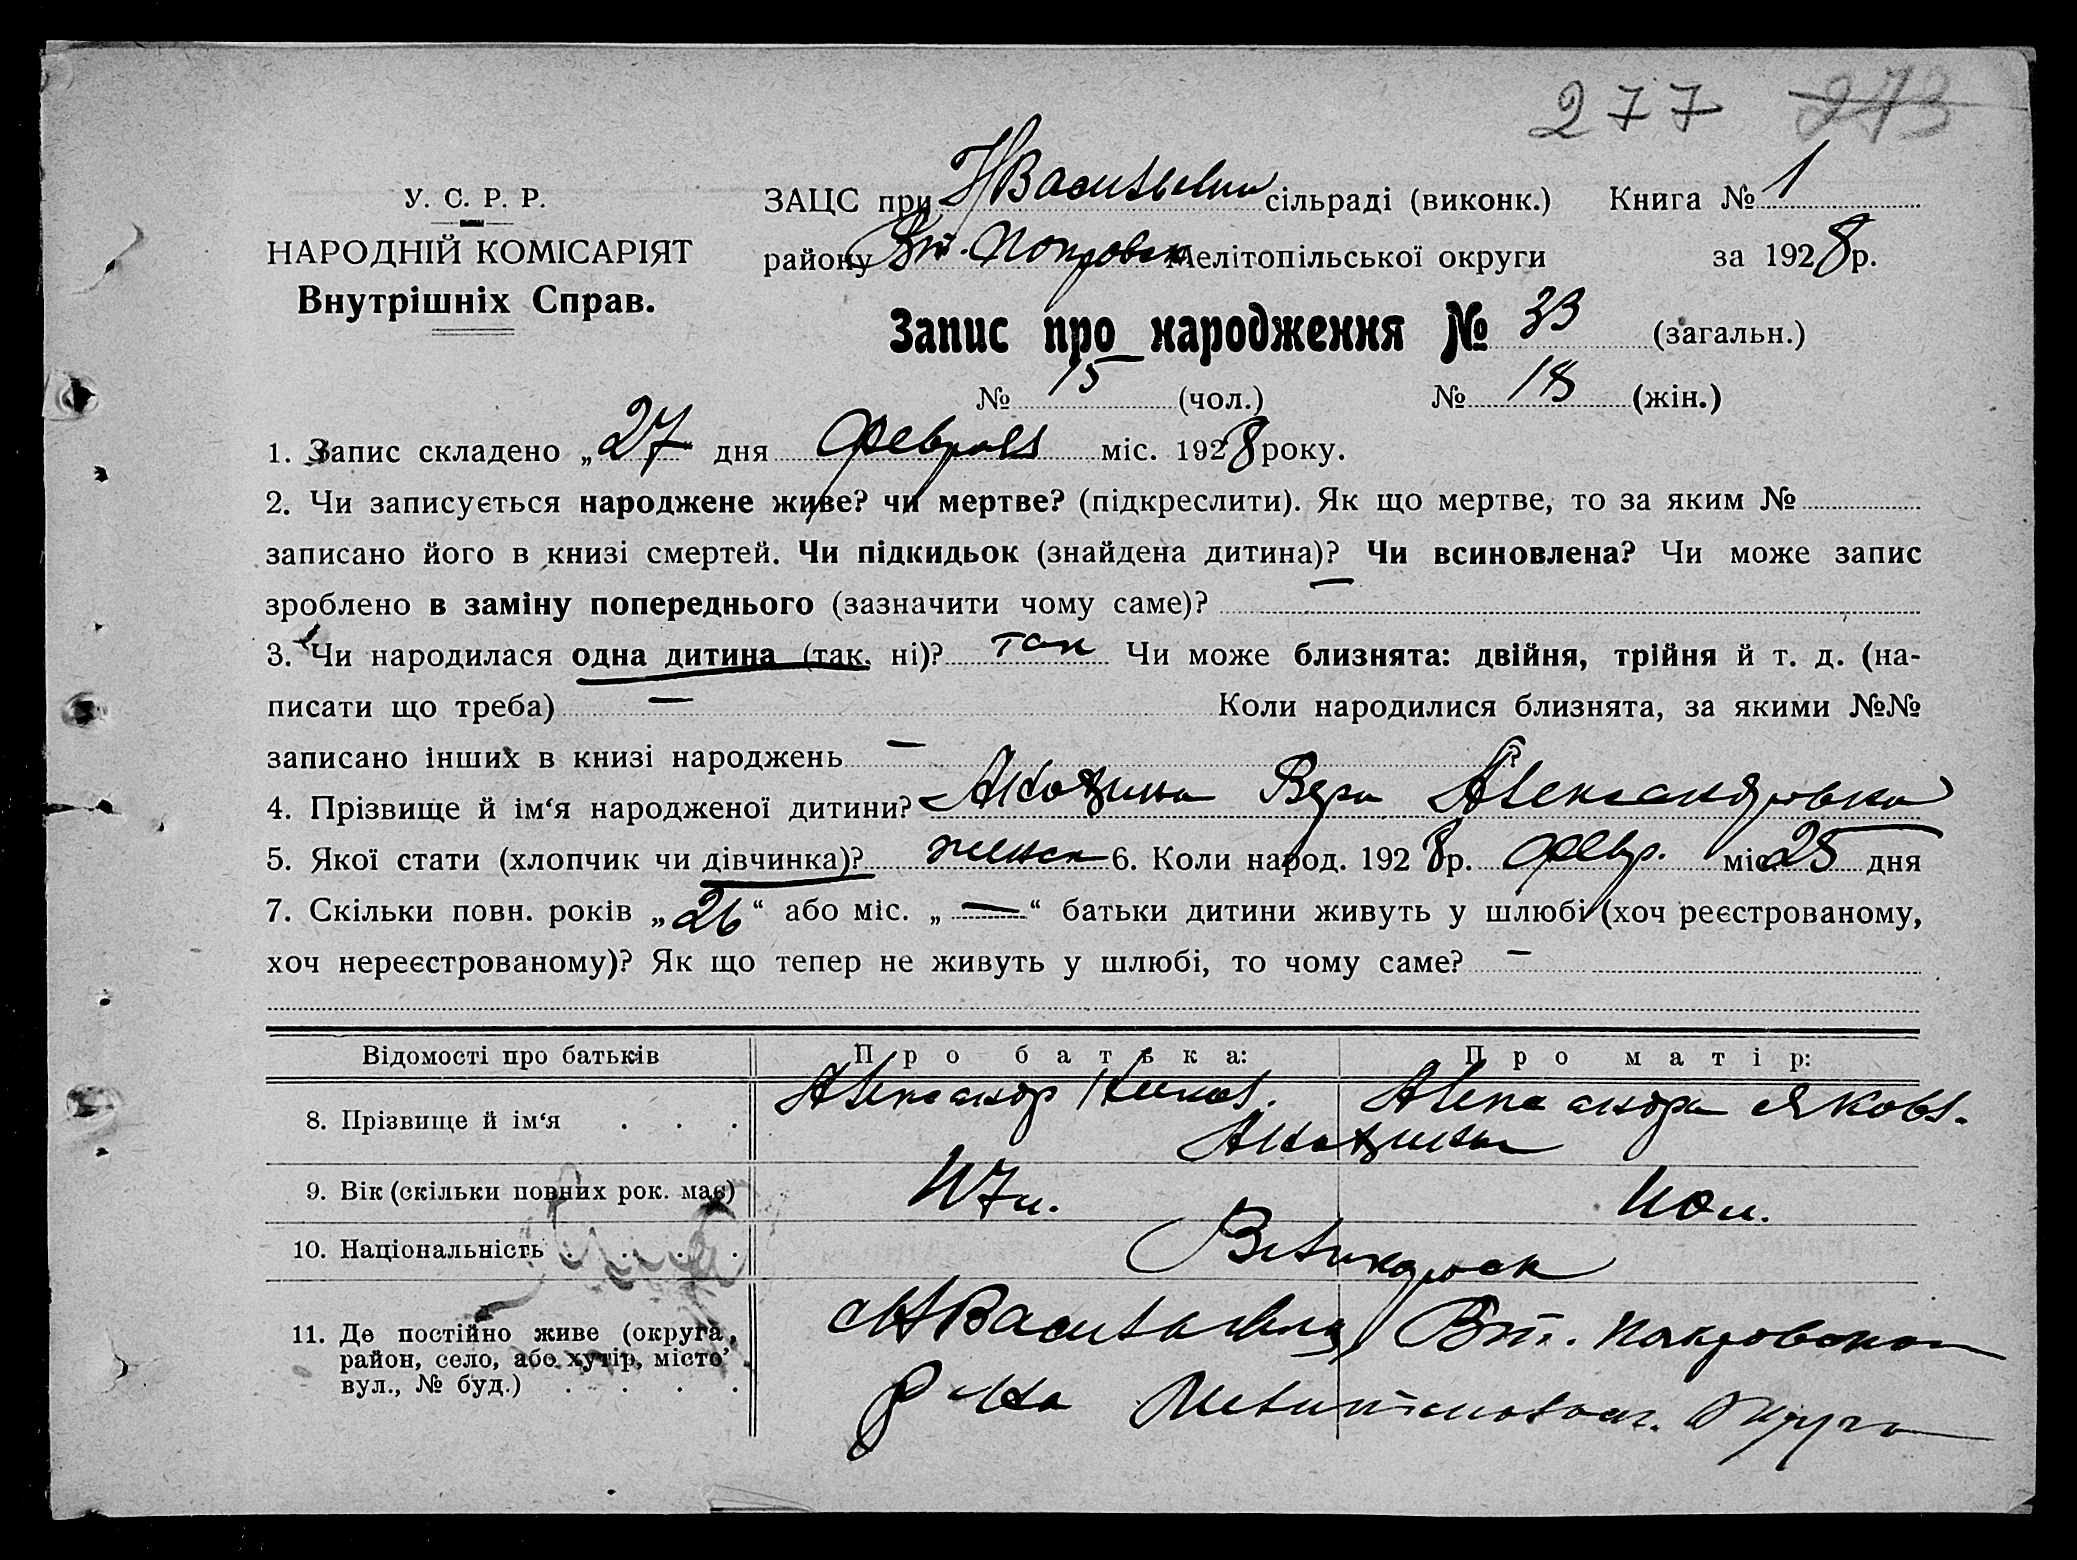 277 273
У. С. Р. Р.
НАРОДНІЙ КОМІСАРІЯТ
Внутрішніх Справ.
ЗАЦС при Н Васильевки сільраді (виконк.) Книга № 1
району Вт. Покровск Мелітопільської округи за 1928 р.
Запис про народження № 33 (загальн.)
№ 15 (чол.) № 18 (жін.)
1. Запис складено „27 дня Февраля міс. 1928 року.
2. Чи записується народжене живе? чи мертве? (підкреслити). Як що мертве, то за яким №
записано його в книзі смертей. Чи підкидьок (знайдена дитина)? Чи всиновлена? Чи може запис
зроблено в заміну попереднього (зазначити чому саме)? —
3. Чи народилася одна дитина (так, ні)? так Чи може близнята: двійня, трійня й т. д. (на-
писати що треба) — Коли народилися близнята, за якими №№
записано інших в книзі народжень — ?
4. Прізвище й ім‘я народженої дитини? Вера Александровна
5. Якої стати (хлопчик чи дівчинка)? женск 6. Коли народ. 1928 р. февр. міс. 25 дня
7. Скільки повн. років „26“ або міс. „—“ батьки дитини живуть у шлюбі (хоч реєстрованому,
хоч нереєстрованому)? Як що тепер не живуть у шлюбі, то чому саме? —
Відомості про батьків Про батька: Про матір:
8. Прізвище й ім‘я . . . Александр Александра Яковл.
9. Вік (скільки повних рок. має) 47 л. 40 л.
10. Національність . . . . Великоросс
11. Де постійно живе (округа, Н Васильевка Вт. Покровского
район, село, або хутір, місто, р-на Мелитопольск. Округа
вул., № буд.) . . . .